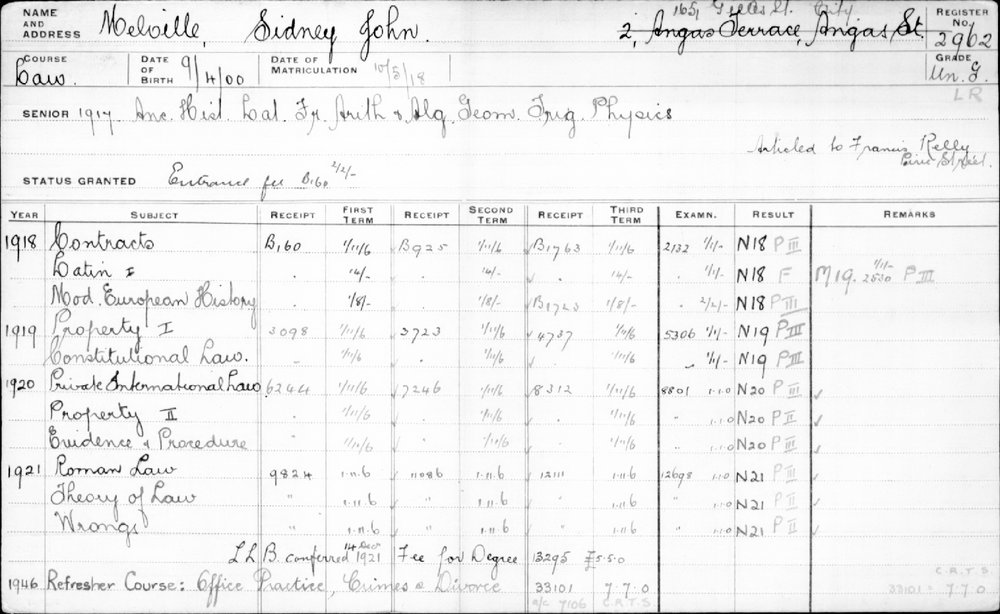 NAME AND ADDRESS Melville, Sidney John. 165, Gilles St. City
2, Angas Terrace, Angas St. REGISTER No. 2962
COURSE Law. DATE OF BIRTH 9/4/00 DATE OF MATRICULATION 10/5/18 GRADE Un. G.
LR
SENIOR 1917. Anc. Hist. Lat. Fr. Arith & Alg. Geom. Trig. Physics
Articled to Francis Kelly
Pirie Street.
STATUS GRANTED Entrance fee B160 2/2/-
YEAR SUBJECT RECEIPT FIRST TERM RECEIPT SECOND TERM RECEIPT THIRD TERM EXAMN. RESULT REMARKS
1918 Contracts B160 1/11/6 B925 1/11/6 B1763 1/11/6 2132 1/1/- N18 P III
Latin I . 14/- . 14/- . 14/- . 1/1/- N18 F M19. 1/1/- 2530 P III
Mod. European History 1/8/- 1/8/- B1723 1/8/- . 2/2/- N18 P III
1919 Property I 3098 1/11/6 3723 1/11/6 4737 1/11/6 5306 1/1/- N19 P III
Constitutional Law. . 1/11/6 . 1/11/6 . 1/11/6 " 1/1/- N19 P III
1920 Private International Law 6244 1/11/6 7246 1/11/6 8312 1/11/6 8801 1.1.0 N20 P III ✓
Property II " 1/11/6 " 1/11/6 1/11/6 " 1.1.0 N20 P II ✓
Evidence & Procedure " 1/11/6 " 1/11/6 1/11/6 " 1.1.0 N20 P III ✓
1921 Roman Law 9824 1.11.6 11086 1.11.6 12111 1.11.6 12698 1.1.0 N21 P II ✓
Theory of Law " 1.11.6 " 1.11.6 " 1.11.6 " 1.1.0 N21 P II ✓
Wrongs " 1.11.6 " 1.11.6 " 1.11.6 " 1.1.0 N21 P II ✓
LL B. conferred 14 Dec 1921 Fee for Degree 13295 £5.5.0
C.R.T.S.
1946 Refresher Course: Office Practice, Crimes & Divorce 33101 7.7.0 33101 = 7.7.0
a/c 7106 C.R.T.S